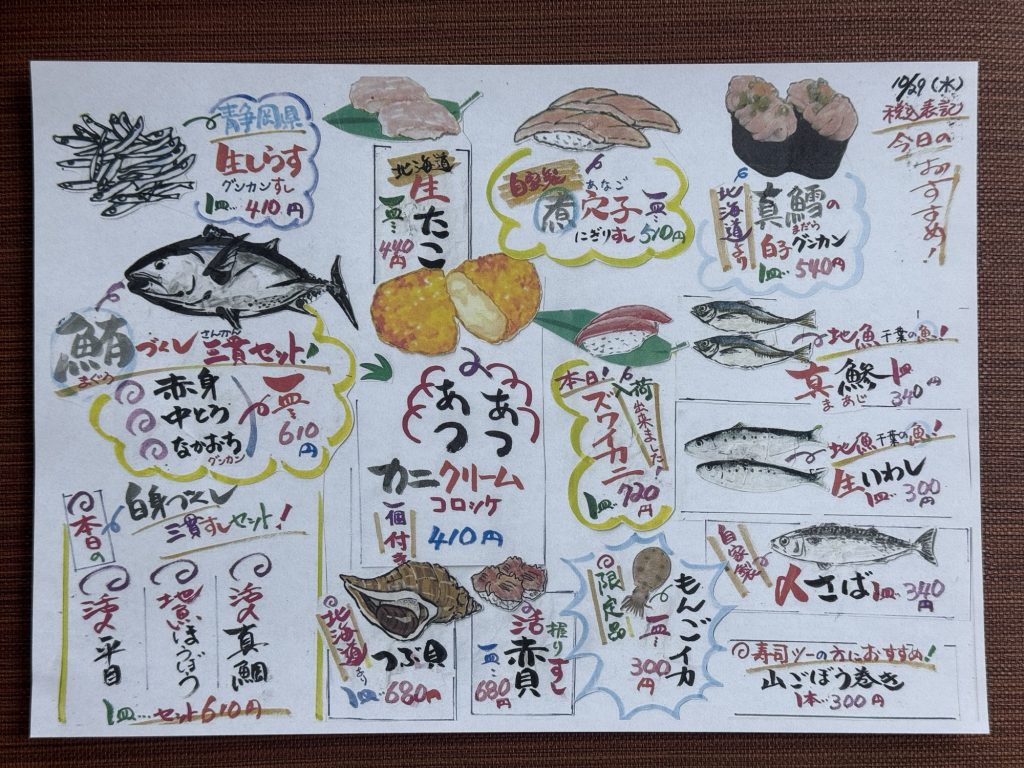 10/29(水)
税込表記
今日の
おすすめ!
静岡県
生しらす
グンカンすし
1皿‥410円
北海道
生たこ
一皿‥
440円
自家製
あなご
煮穴子
にぎりすし
一皿‥510円
北海道より
真鱈の
まだら
白子グンカン
1皿‥540円
鮪づくし
まぐろ
さんかん
三貫セット!
赤身
中とろ
なかおち
グンカン
一皿‥
610円
あつあつ
カニクリーム
コロッケ
一個付き
410円
本日!入荷出来ました!
ズワイカニ
1皿‥720円
地魚千葉の魚!
真鯵
まあじ
1皿
340円
地魚千葉の魚!
生いわし
1皿‥300円
自家製
〆さば
1皿‥340円
本日の
白身づくし
三貫すしセット!
活〆真鯛
地魚ほうぼう
活〆平目
1皿‥セット610円
北海道より
つぶ貝
1皿‥680円
活赤貝
握りすし
一皿‥
680円
限定品
もんごイカ
一皿‥
300円
寿司ツーの方におすすめ!
山ごぼう巻き
1本‥300円